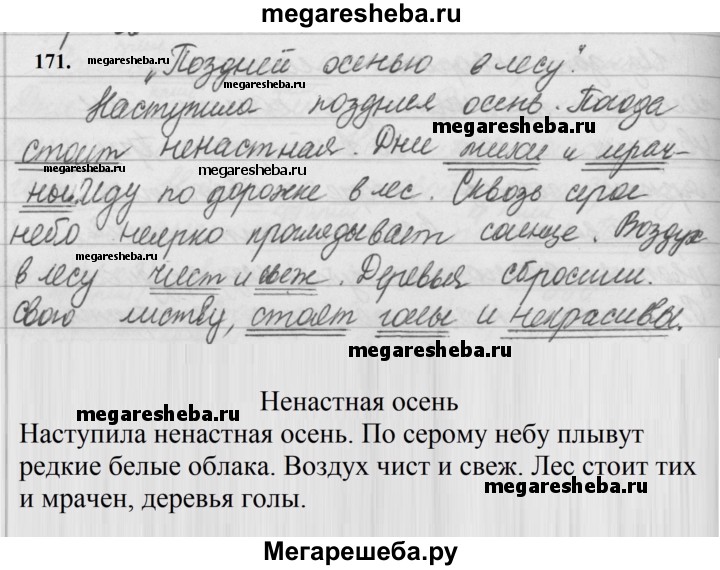 megaresheba.ru
171. „Поздней осенью в лесу".
megaresheba.ru
Наступила поздняя осень. Погода
megaresheba.ru
стоит ненастная. Дни тихи и мрач-
megaresheba.ru
ны. Иду по дорожке в лес. Сквозь серое
небо неярко проглядывает солнце. Воздух
megaresheba.ru
в лесу чист и свеж. Деревья сбросили
свою листву, стоят голы и некрасивы.
megaresheba.ru
Ненастная осень
megaresheba.ru
Наступила ненастная осень. По серому небу плывут
редкие белые облака. Воздух чист и свеж. Лес стоит тих
и мрачен, деревья голы.
megaresheba.ru
Мегарешеба.ру